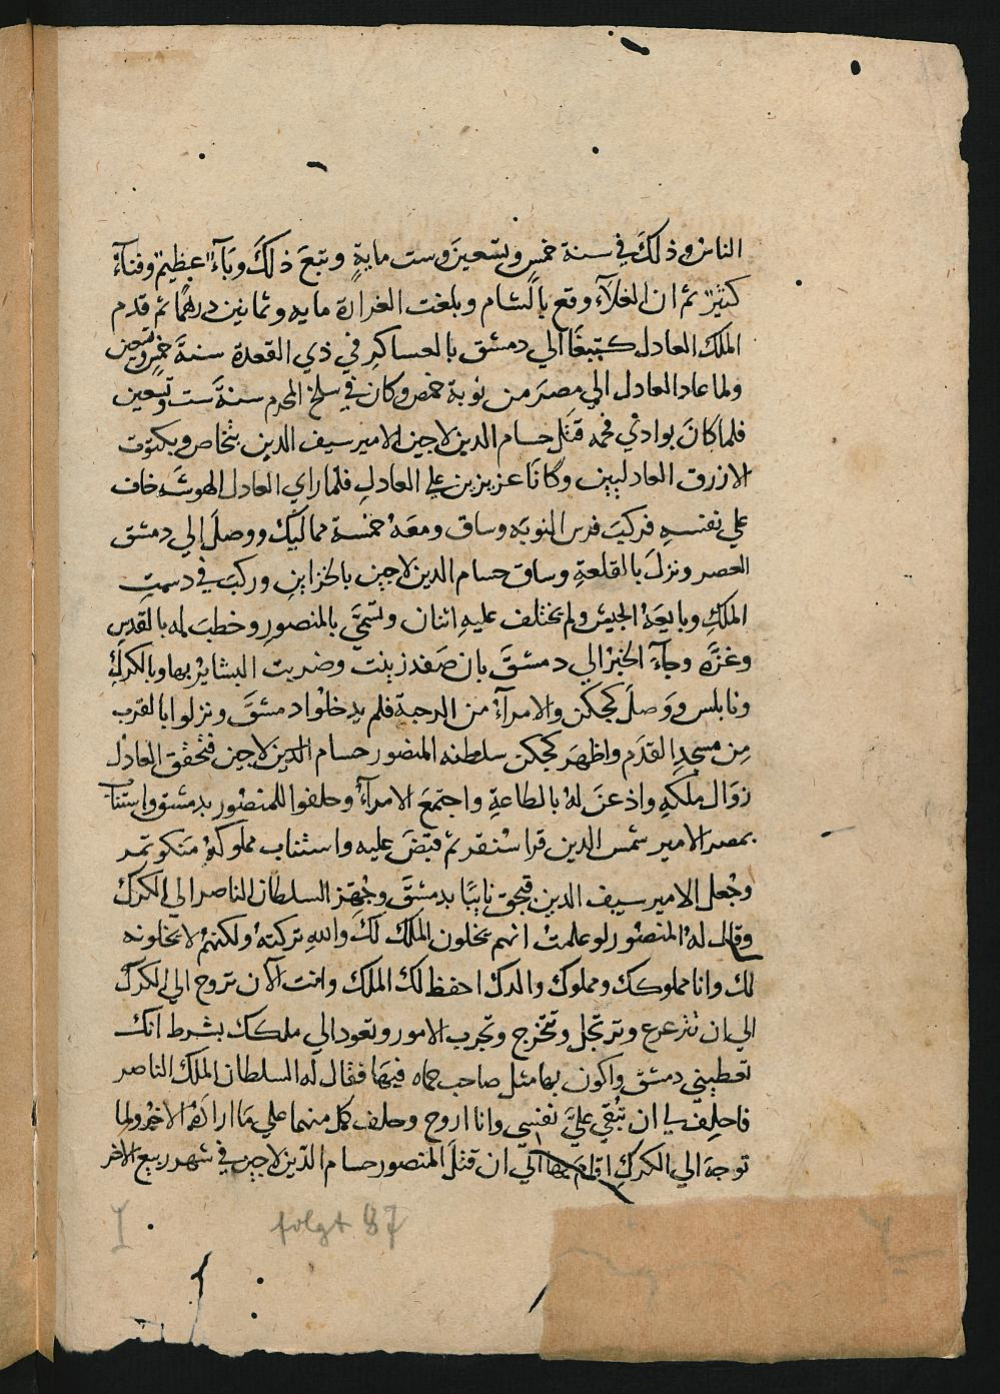 الناس وذلك في سنة خمس وتسعين وست ماية وتبع ذلك وبآء عظيم وفنآء
كثير ثم ان الغلاء وقع بالشام وبلغت الغرارة مايه وثمانين درهما ثم قدم
الملك العادل كتبغا الي دمشق بالعساكر في ذي القعدة سنة خمس وتسعين
ولما عاد العادل الي مصر من نوبة حمص وكان في سلخ المحرم سنة ست وتسعين
فلما كان بوادي فحمه قتل حسام الدين لاجين الامير سيف الدين بتخاص وبكتوت
الازرق العادليين وكانا عزيزين علي العادل فلما راي العادل الهوشه خاف
علي نفسه فركب فرس النوبه وساق ومعه خمسة مماليك ووصل الي دمشق
العصر ونزل بالقلعة وساق حسام الدين لاجين بالخزاين وركب في دست
الملك وبايعه الجيش ولم يختلف عليه اثنان وتسمي بالمنصور وخطب له بالقدس
وغزة وجآء الخبر الي دمشق بان صفد زينت وضربت البشاير بها وبالكرك
ونابلس ووصل كجكن والامرآء من الرحبة فلم يدخلوا دمشق ونزلوا بالقرب
من مسجد القدم واظهر كجكن سلطنه المنصور حسام الدين لاجين فتحقق العادل
زوال ملكه واذعن له بالطاعة واجتمع الامرآء وحلفوا للمنصور بدمشق واستناب
بمصر الامير شمس الدين قراسنقر ثم قبض عليه واستناب مملوكه منكوتمر
وجعل الامير سيف الدين قبجق نايبا بدمشق وجهز السلطان الناصر الي الكرك
وقال له المنصور لو علمت انهم يخلون الملك لك والله تركته ولكنهم لا يخلونه
لك وانا مملوكك ومملوك والدك احفظ لك الملك وانت الان تروح الي الكرك
الي ان تترعرع وتترجل وتتخرج وتجرب الامور وتعود الي ملكك بشرط انك
تعطيني دمشق واكون بها مثل صاحب حماه فيها فقال له السلطان الملك الناصر
فاحلف لي ان تبقي علي نفسي وانا اروح وحلف كل منهما علي ما اراده الاخر ولما
توجه الي الكرك اقام بها الي ان قتل المنصور حسام الدين لاجين في شهر ربيع الاخر
folgt 87